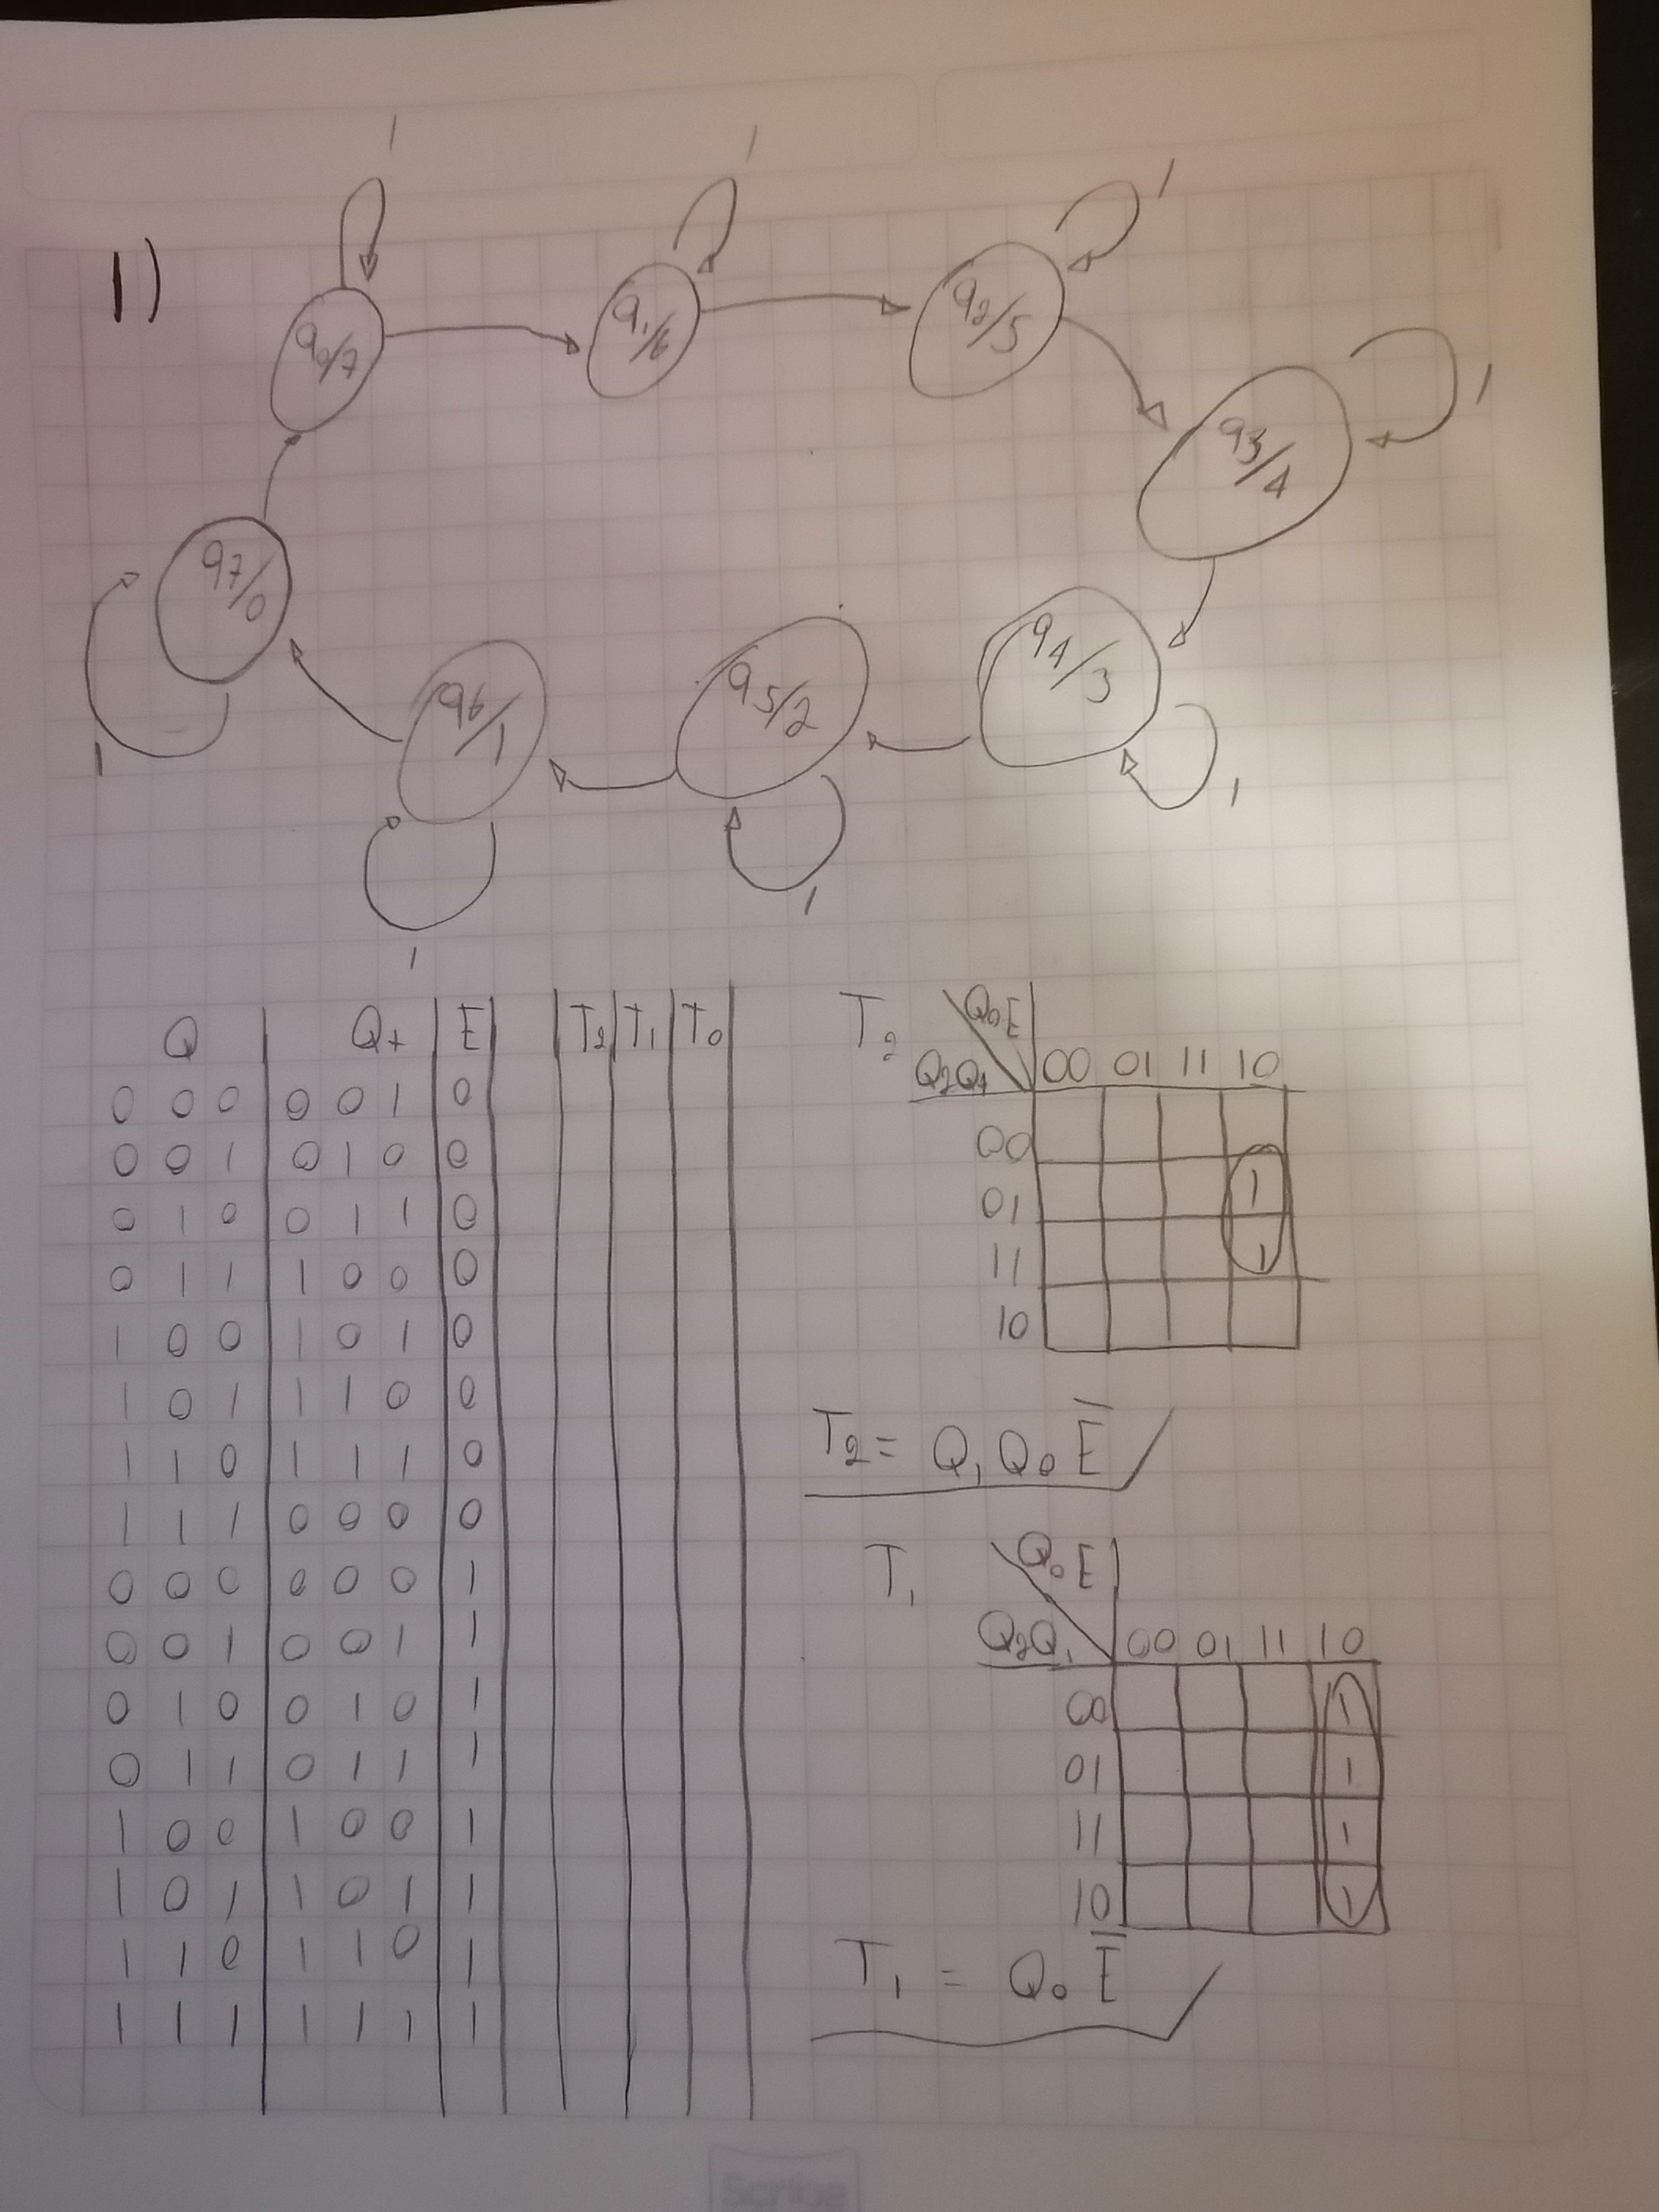 1)
1 1 1
q0/7 q1/6 q2/5
1
q3/4
q7/0 q4/3
q6/1 q5/2
1 1
1
1
Q Q+ E T2 T1 T0
0 0 0 0 0 1 0
0 0 1 0 1 0 0
0 1 0 0 1 1 0
0 1 1 1 0 0 0
1 0 0 1 0 1 0
1 0 1 1 1 0 0
1 1 0 1 1 1 0
1 1 1 0 0 0 0
0 0 0 0 0 0 1
0 0 1 0 0 1 1
0 1 0 0 1 0 1
0 1 1 0 1 1 1
1 0 0 1 0 0 1
1 0 1 1 0 1 1
1 1 0 1 1 0 1
1 1 1 1 1 1 1
T2 Q0E
Q2Q1 00 01 11 10
00
01 1
11 1
10
T2 = Q1 Q0 E̅
T1 Q0E
Q2Q1 00 01 11 10
00 1
01 1
11 1
10 1
T1 = Q0 E̅
Scribe